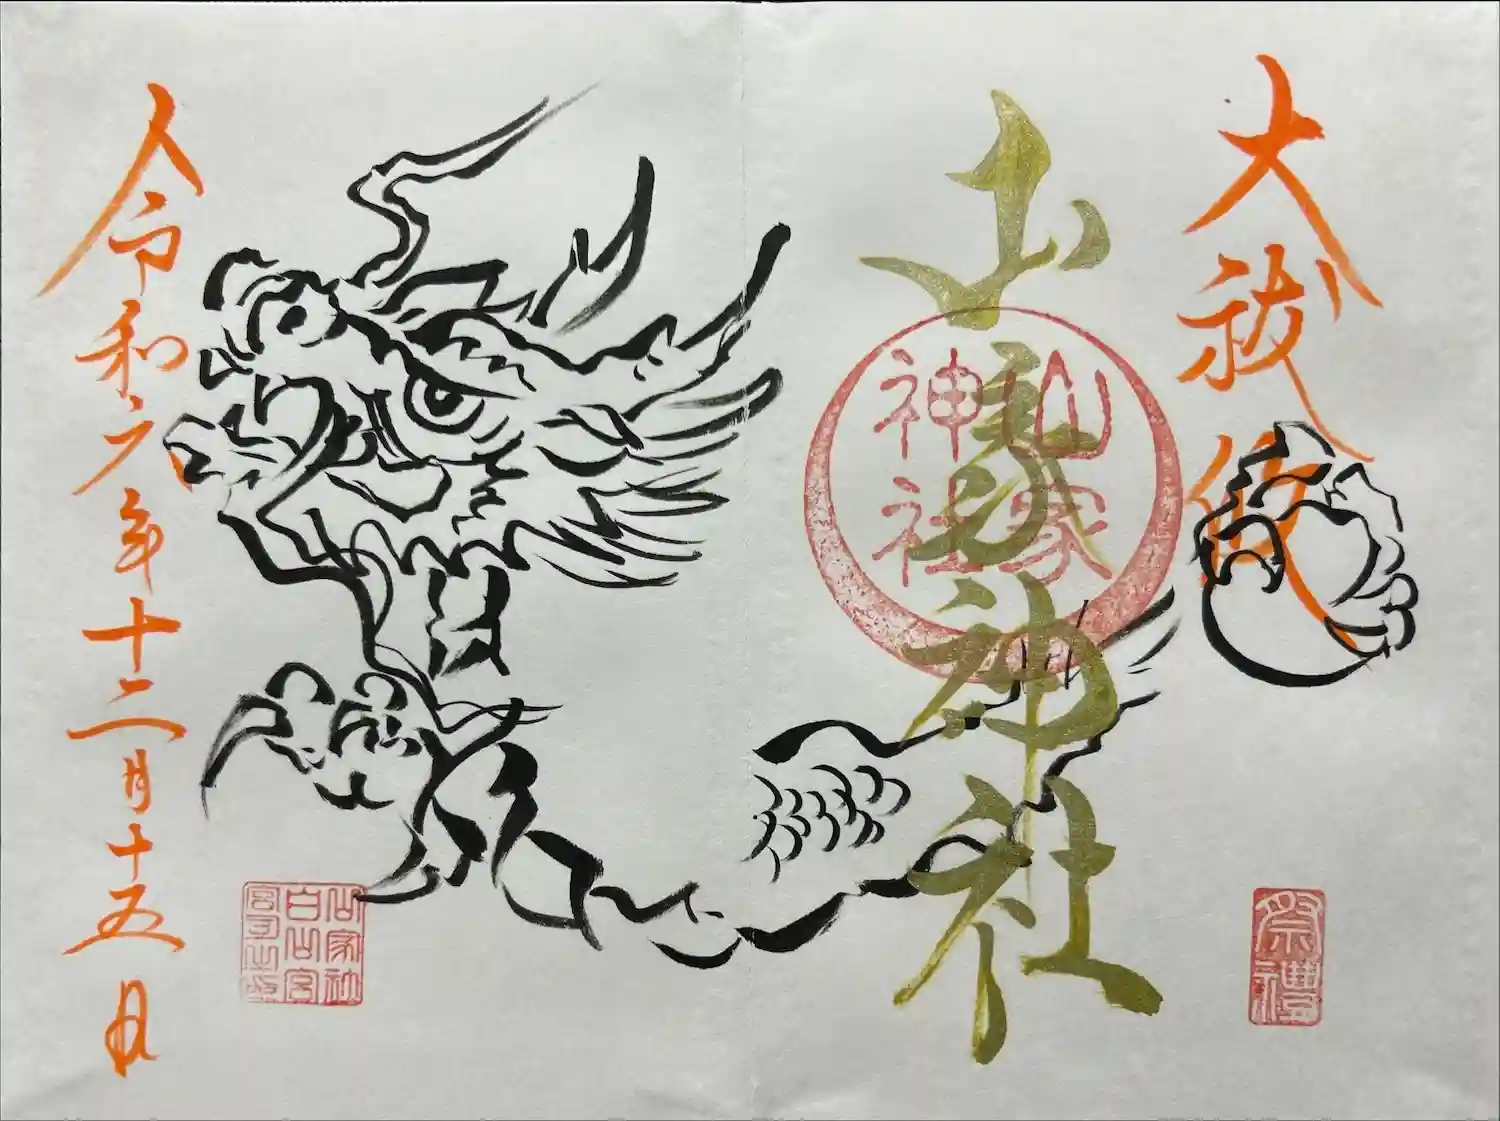 大祓儀
山家神社
山家
神社
祭禮
令和六年十二月十五日
山家神社
白山宮